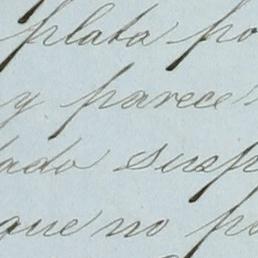 plata po
y parece
dado susp
que no p